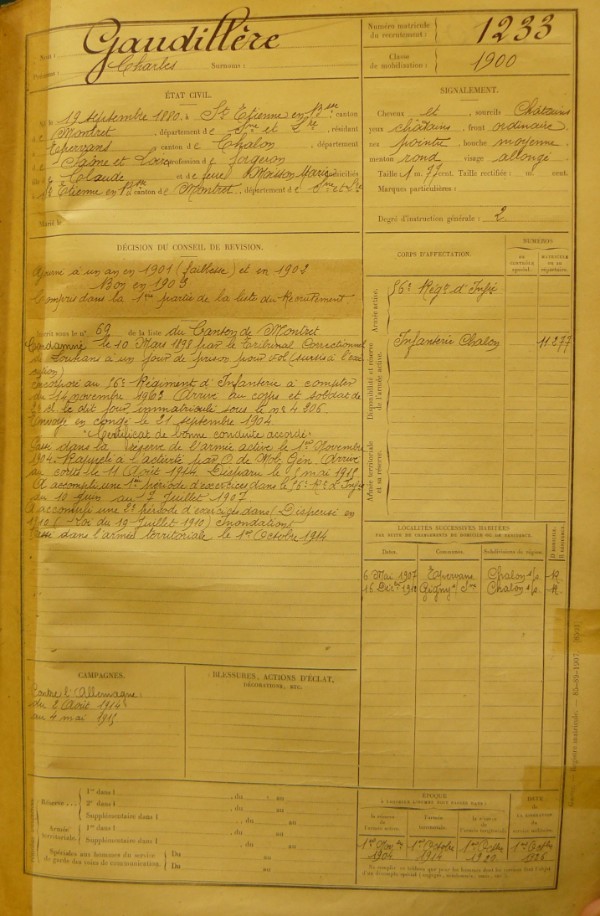 Nom : Gaudillère
Prénoms : Charles Surnoms :
Numéro matricule du recrutement : 1233
Classe de mobilisation : 1900
ÉTAT CIVIL.
Né le 19 septembre 1880, à St Etienne en Bsse canton
de Montret, département de Sne et Lre, résident
à Epervans, canton de Chalon, département
de Saône et Loire profession de forgeron
fils de Claude et de feue Moisson Marie domiciliés
à St Etienne en Bsse canton de Montret, département de Sne et Lre
Marié à
SIGNALEMENT.
Cheveux et sourcils châtains
yeux châtains, front ordinaire
nez pointu, bouche moyenne
menton rond visage allongé
Taille : 1 m. 71 cent. Taille rectifiée : m. cent.
Marques particulières :
Degré d'instruction générale : 2
DÉCISION DU CONSEIL DE REVISION.
Ajourné à un an en 1901 (faiblesse) et en 1902
Bon en 1903
Compris dans la 1re partie de la liste du Recrutement
Inscrit sous le no 69 de la liste du Canton de Montret
Condamné le 10 Mars 1898 par le Tribunal Correctionnel
de Louhans à un jour de prison pour vol (sursis à l'exé-
cution)
Incorporé au 56e Régiment d'Infanterie à compter
du 14 novembre 1903 Arrivé au corps et soldat de
2e cl. le dit jour immatriculé sous le no 4206
Envoyé en congé le 21 septembre 1904
"Certificat de bonne conduite accordé"
Passé dans la réserve de l'armée active le 1er Novembre
1904. Rappelé à l'activité par O de Mob. Gén. Arrivé
au corps le 11 Août 1914
A accompli une 1re période d'exercices dans le 56e Rt d'Infie
du 10 juin au 7 Juillet 1907
A accompli une 2e période d'exercices dans Dispensé en
1910 (Loi du 19 Juillet 1910) (inondations)
Passé dans l'armée territoriale le 1er Octobre 1914
CORPS D'AFFECTATION.
NUMÉROS
AU CONTRÔLE spécial.
MATRICULE OU AU répertoire.
Armée active.
56e Régt d'Infie
Disponibilité et réserve de l'armée active.
Infanterie Chalon 11277
Armée territoriale et sa réserve.
LOCALITÉS SUCCESSIVES HABITÉES
PAR SUITE DE CHANGEMENTS DE DOMICILE OU DE RÉSIDENCE.
Dates. Communes. Subdivisions de région. D domicile. R résidence.
6 Mai 1907 Epervans Chalon s/s R
16 1912 Gigny s/ Sne Chalon s/s R
CAMPAGNES.
Contre l'Allemagne :
du 2 Août 1914
au 4 mai 1915
BLESSURES, ACTIONS D'ÉCLAT,
DÉCORATIONS, ETC.
Réserve
1re dans l , du : au
2e dans l , du : au
Supplémentaire dans l , du : au
Armée territoriale.
1re dans l , du : au
Supplémentaire dans l , du : au
Spéciales aux hommes du service de garde des voies de communication.
Du au
Du au
ÉPOQUE
À LAQUELLE L'HOMME DOIT PASSER DANS :
la réserve de l'armée active
l'armée territoriale.
la réserve de l'armée territoriale
DATE de LA LIBÉRATION du service militaire
1er Nov. 1904
1er Octobre 1914
1er Octbre 1920
1er Octbre 1926